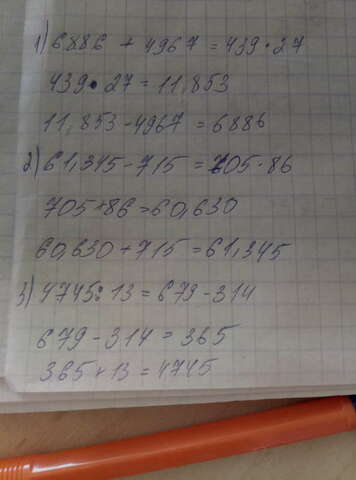 1) 6886 + 4967 = 439 · 27
439 · 27 = 11,853
11,853 - 4967 = 6886
2) 61,345 - 715 = 705 · 86
705 × 86 = 60,630
60,630 + 715 = 61,345
3) 4745 : 13 = 679 - 314
679 - 314 = 365
365 × 13 = 4745